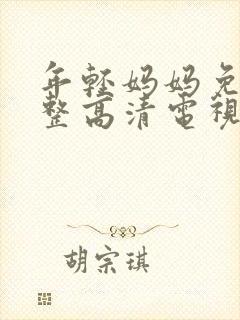 年輕媽媽免
整高清電視
胡宗琪